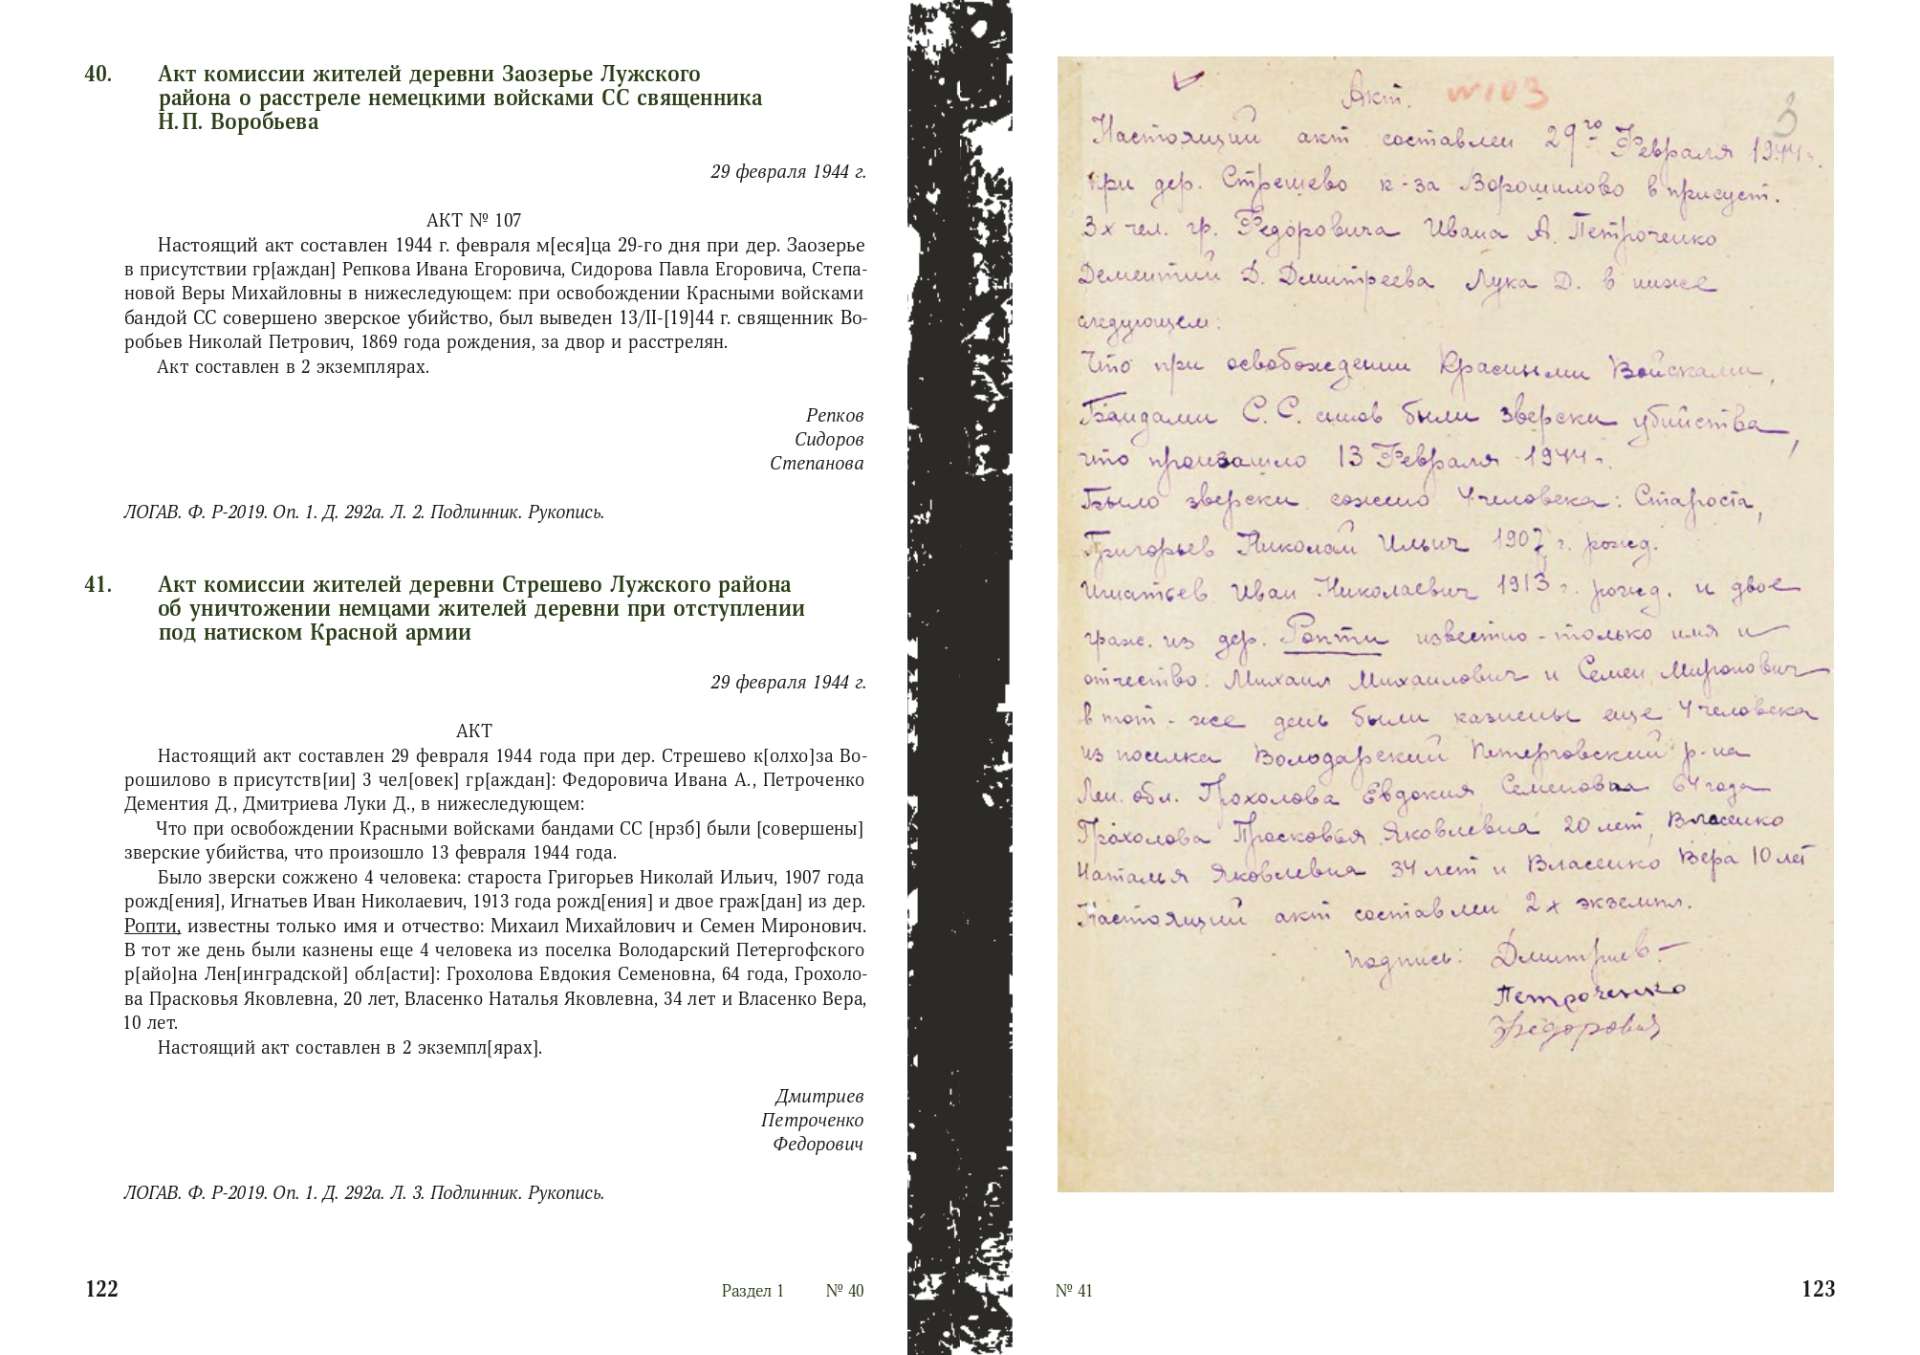 40. Акт комиссии жителей деревни Заозерье Лужского
района о расстреле немецкими войсками СС священника
Н.П. Воробьева
29 февраля 1944 г.
АКТ № 107
Настоящий акт составлен 1944 г. февраля м[еся]ца 29-го дня при дер. Заозерье
в присутствии гр[аждан] Репкова Ивана Егоровича, Сидорова Павла Егоровича, Степа-
новой Веры Михайловны в нижеследующем: при освобождении Красными войсками
бандой СС совершено зверское убийство, был выведен 13/II-[19]44 г. священник Во-
робьев Николай Петрович, 1869 года рождения, за двор и расстрелян.
Акт составлен в 2 экземплярах.
Репков
Сидоров
Степанова
ЛОГАВ. Ф. Р-2019. Оп. 1. Д. 292а. Л. 2. Подлинник. Рукопись.
41. Акт комиссии жителей деревни Стрешево Лужского района
об уничтожении немцами жителей деревни при отступлении
под натиском Красной армии
29 февраля 1944 г.
АКТ
Настоящий акт составлен 29 февраля 1944 года при дер. Стрешево к[олхо]за Во-
рошилово в присутств[ии] 3 чел[овек] гр[аждан]: Федоровича Ивана А., Петроченко
Дементия Д., Дмитриева Луки Д., в нижеследующем:
Что при освобождении Красными войсками бандами СС [нрзб] были [совершены]
зверские убийства, что произошло 13 февраля 1944 года.
Было зверски сожжено 4 человека: староста Григорьев Николай Ильич, 1907 года
рожд[ения], Игнатьев Иван Николаевич, 1913 года рожд[ения] и двое граж[дан] из дер.
Ропти, известны только имя и отчество: Михаил Михайлович и Семен Миронович.
В тот же день были казнены еще 4 человека из поселка Володарский Петергофского
р[айо]на Лен[инградской] обл[асти]: Грохолова Евдокия Семеновна, 64 года, Грохоло-
ва Прасковья Яковлевна, 20 лет, Власенко Наталья Яковлевна, 34 лет и Власенко Вера,
10 лет.
Настоящий акт составлен в 2 экземпл[ярах].
Дмитриев
Петроченко
Федорович
ЛОГАВ. Ф. Р-2019. Оп. 1. Д. 292а. Л. 3. Подлинник. Рукопись.
122
Раздел 1 № 40
Акт. №103
3
Настоящий акт составлен 29го Февраля 1944г.
при дер. Стрешево к-за Ворошилово в присуст.
3х чел. гр. Федоровича Ивана А. Петроченко
Дементий Д. Дмитреева Лука Д. в ниже
следующем:
Что при освобождении Красными Войсками,
Бандами С.С. были зверски убийства,
что произашло 13 Февраля 1944 г.
Было зверски сожено 4 человека: Староста,
Григорьев Николай Ильич 1907 г. рожд.
Игнатьев Иван Николаевич 1913 г. рожд. и двое
граж. из дер. Ропти известно-только имя и
отчество: Михаил Михаилович и Семен Миронович
в тот-же день были казнены еще 4 человека
из поселка Володарский Петерговский р-на
Лен. обл. Грохолова Евдокия Семеновна 64 года
Грохолова Просковья Яковлевна 20 лет, Власенко
Наталья Яковлевна 34 лет и Власенко Вера 10 лет
Настоящий акт составлен 2х экземпл.
подпись: Дмитриев
Петроченко
Федорович
№ 41
123